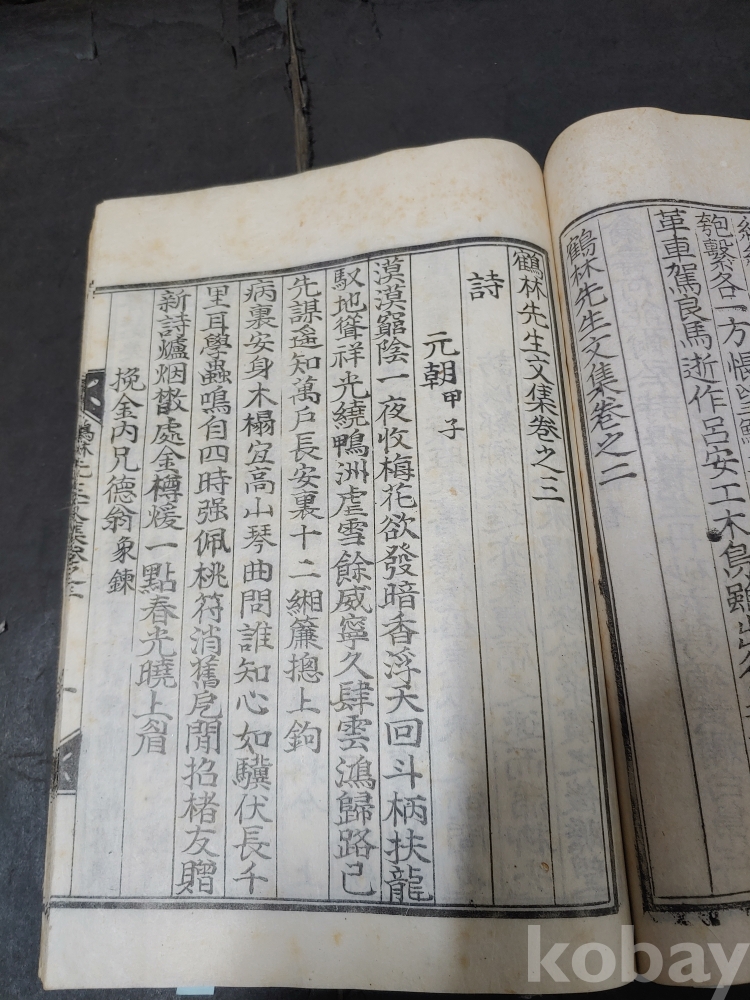 匏繫各一方悵望
革車駕良馬逝作呂安工木
鶴林先生文集卷之二
鶴林先生文集卷之三
詩
元朝甲子
漠漠窮陰一夜收梅花欲發暗香浮天回斗柄扶龍
馭地聳祥光繞鴨洲虐雪餘威寧久肆雲鴻歸路已
先謀遥知萬戶長安裏十二緗簾摠上鉤
病裏安身木榻宜高山琴曲問誰知心如驥伏長千
里耳學蟲鳴自四時强佩桃符消舊戹閒招楮友贈
新詩爐烟散處金樽煖一點春光曉上眉
挽金內兄德翁象鍊
鶴林先生文集卷之三
一
kobay